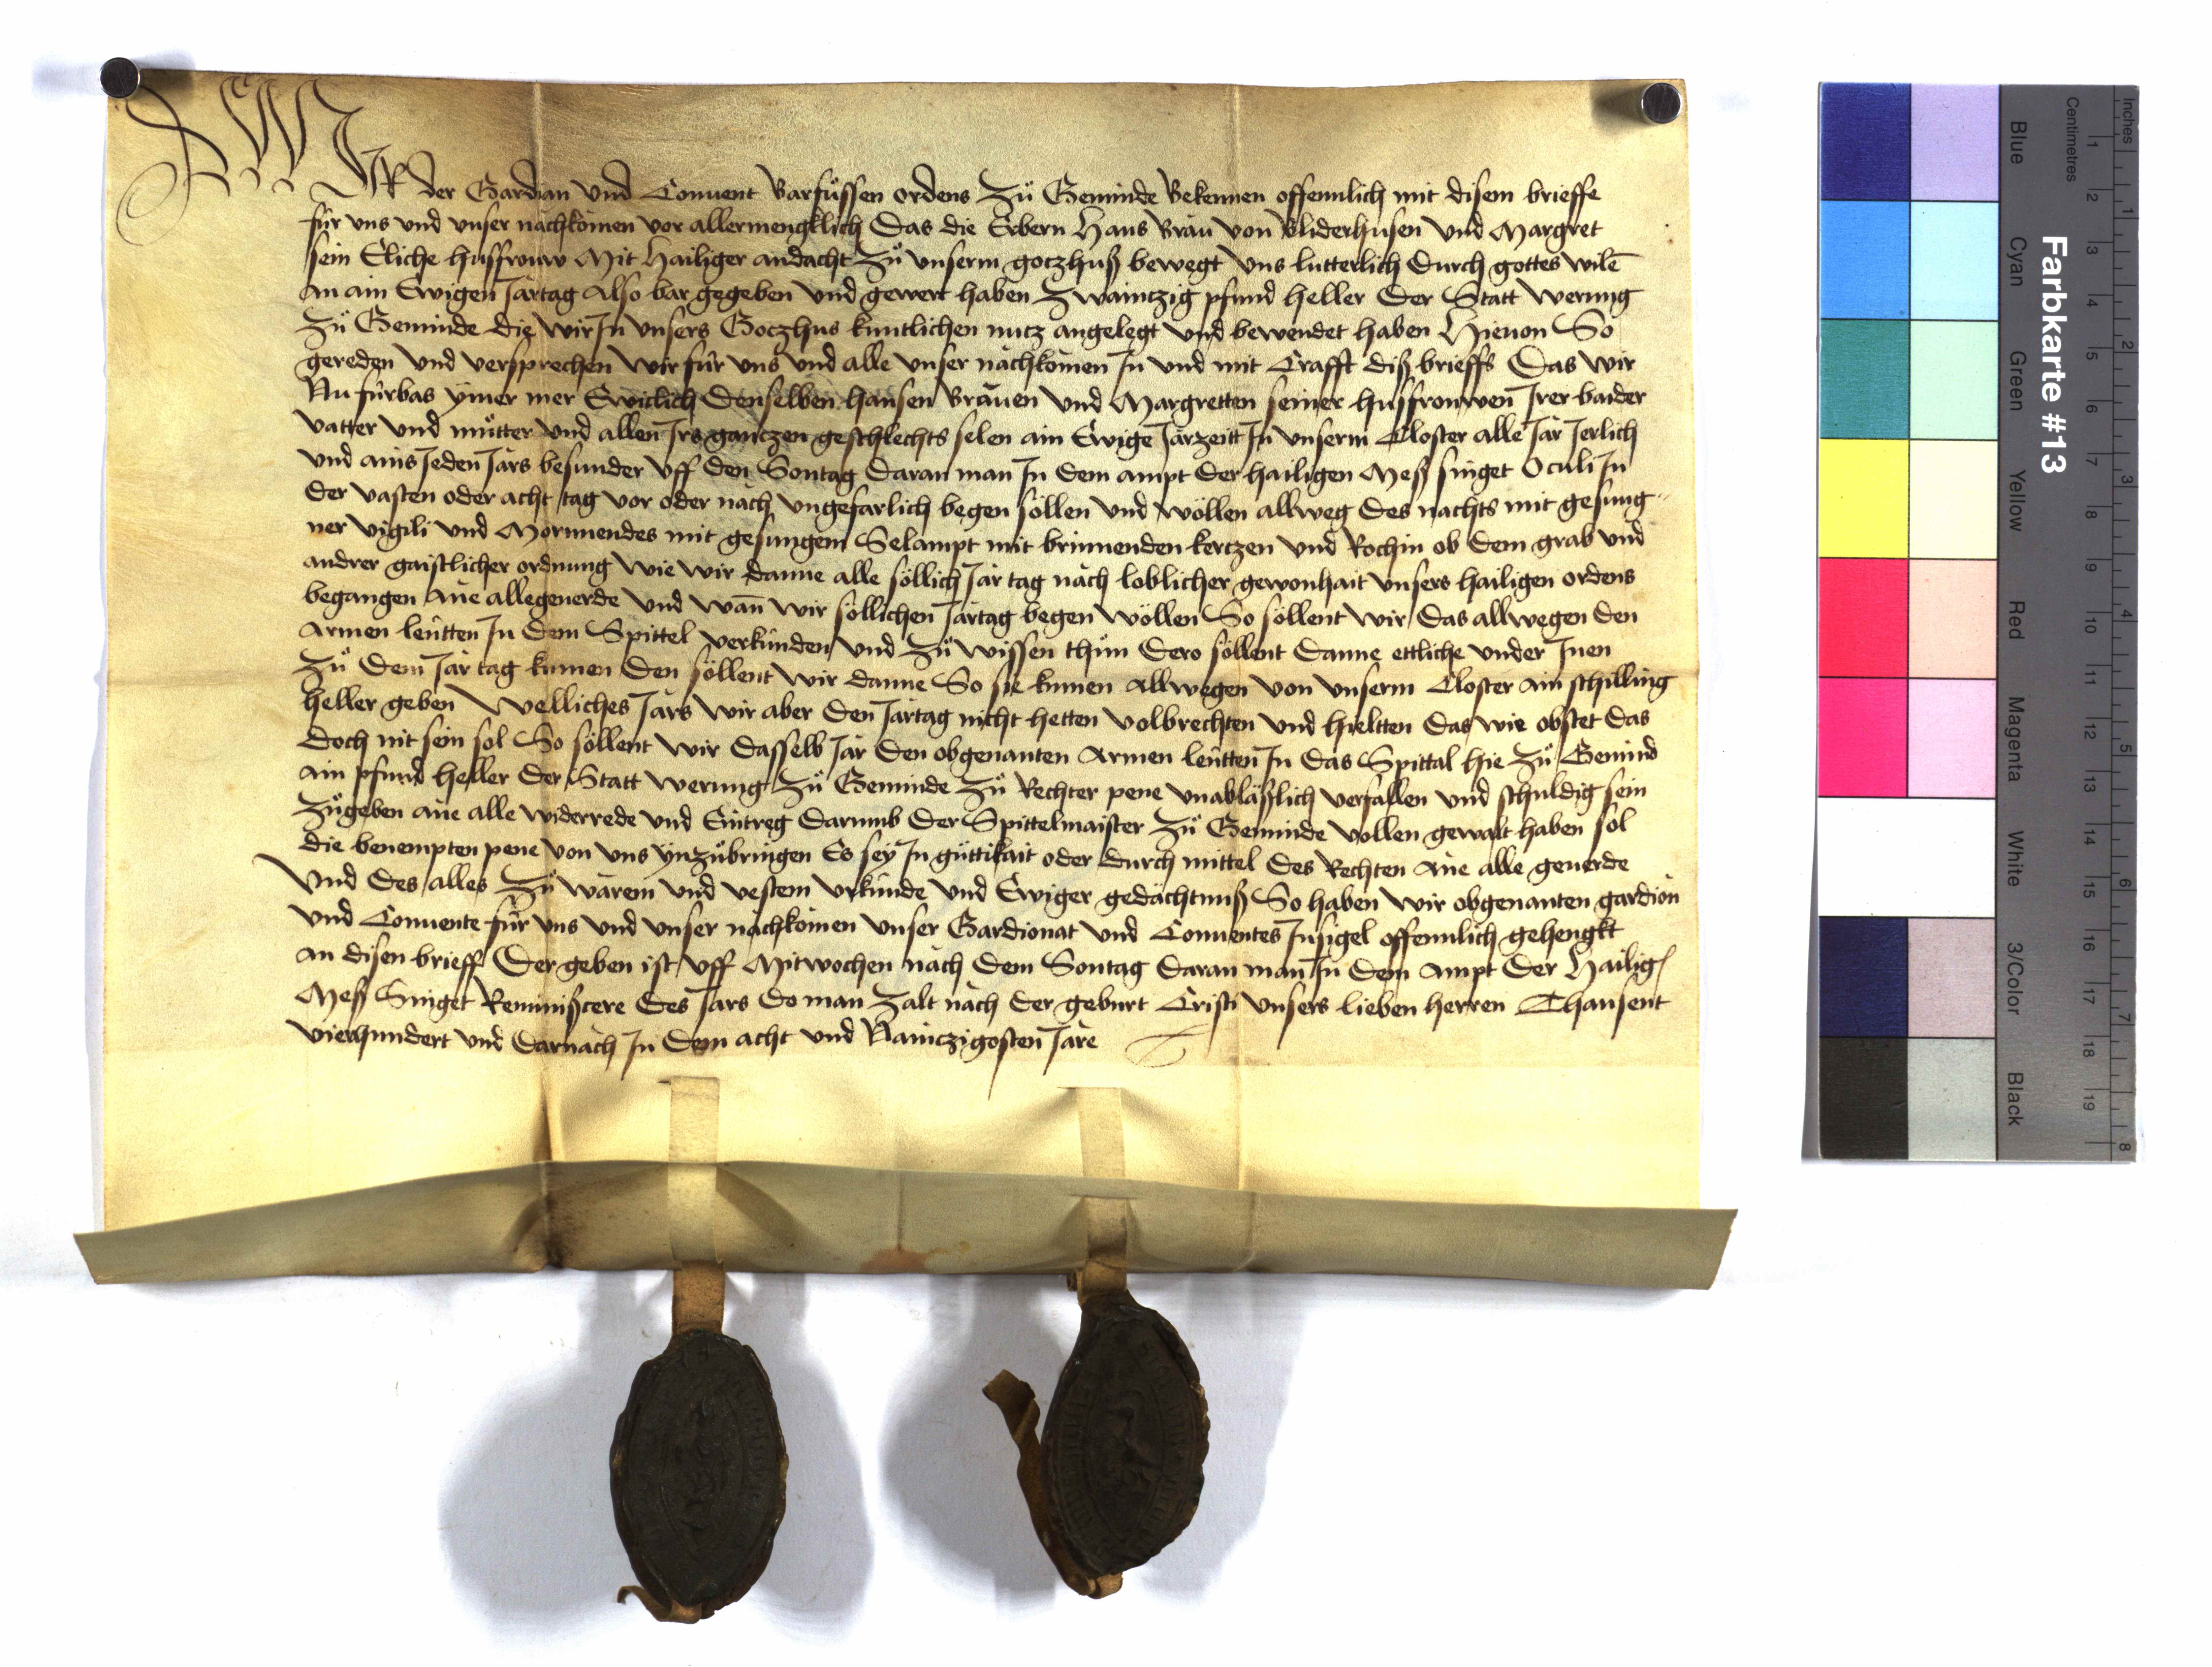 WIR der Gardian und Conuent Barfüssen ordens Zů Gemünde Bekennen offennlich mit disem brieffe
für uns und unser nachkomen vor allermengklich Das die Erbern Hans Bräu von Bliderhusen und Margret
sein Eliche husfrouw Mit Hailiger andacht Zů unserm goczhuß bewegt uns lutterlich durch gottes wilē
an ain Ewigen Jartag Also bar gegeben und gewert haben Zwainczig pfund heller Der Statt werung
Zů Gemünde die wir Jn unsers Goczhus kuntlichen nucz angelegt und bewendet haben Hieuon So
gereden und versprechen wir für uns und alle unser nachkomen Jn und mit Crafft diß brieffs Das wir
Nu fürbas ymer mer Ewiclich denselben hansen Bräuen und Margretten seiner husfrouwen Jrer baider
vatter und můtter und allen Jrs ganczen geschlechts selen ain Ewige Jarzeitt Jn unserm Closter alle Jar Jerlich
und ains Jeden Jars besunder uff den Sontag daran man Jn dem ampt der hailigen Meß singet Oculi Jn
der vasten oder acht tag vor oder nach ungefarlich begen söllen und wöllen allweg des nachts mit gesung-
ner vigili und Mornnendes mit gesungem Selampt mit brinnenden kerczen und Rochin ob dem grab und
andrer gaistlicher ordnung wie wir danne alle söllich Jar tag nach loblicher gewonhait unsers hailigen ordens
begangen ane allegeuerde und wan̄ wir söllichen Jartag begen wöllen So söllent wir das allwegen den
armen leütten Jn dem Spittel verkünden und Zů wissen thůn Dero söllent danne ettliche under Jnen
Zů dem Jar tag kumen den söllent wir danne So sie kumen allwegen von unserm Closter ain schilling
heller geben Welliches Jars wir aber den Jartag nicht hetten volbrechten und hieltten das wie obstet das
doch nit sein sol So söllent wir dasselb Jar den obgenanten armen leütten Jn das Spittal hie Zů Gemünd
ain pfund heller der Statt werung Zů Gemünde Zů Rechter pene unabläslich verfallen und schuldig sein
Zůgeben ane alle widerrede und Eintreg darumb der Spittelmaister Zů Gemünde vollen gewalt haben sol
die benempten pene von uns ynzůbringen Es sey Jn güttikait oder durch mittel des Rechten ane alle geuerde
Und des alles Zů warem und vestem urkunde und Ewiger gedächtnuß So haben wir obgenanten gardion
und Conuente für uns und unser nachkomen unser Gardionat und Conuentes Jnsigel offennlich gehengkt
an disen brieff Der geben ist uff Mitwochen nach dem Sontag daran man Jn dem ampt der Hailigen
Meß Singet Reminiscere des Jars do man Zalt nach der geburt Cristi unsers lieben herren Thausent
vierhundert und darnach Jn dem acht und Nainczigosten Jare
Farbkarte #13
Inches
Centimetres
1 2 3 4 5 6 7 8 9 10 11 12 13 14 15 16 17 18 19
1 2 3 4 5 6 7 8
Blue
Cyan
Green
Yellow
Red
Magenta
White
3/Color
Black